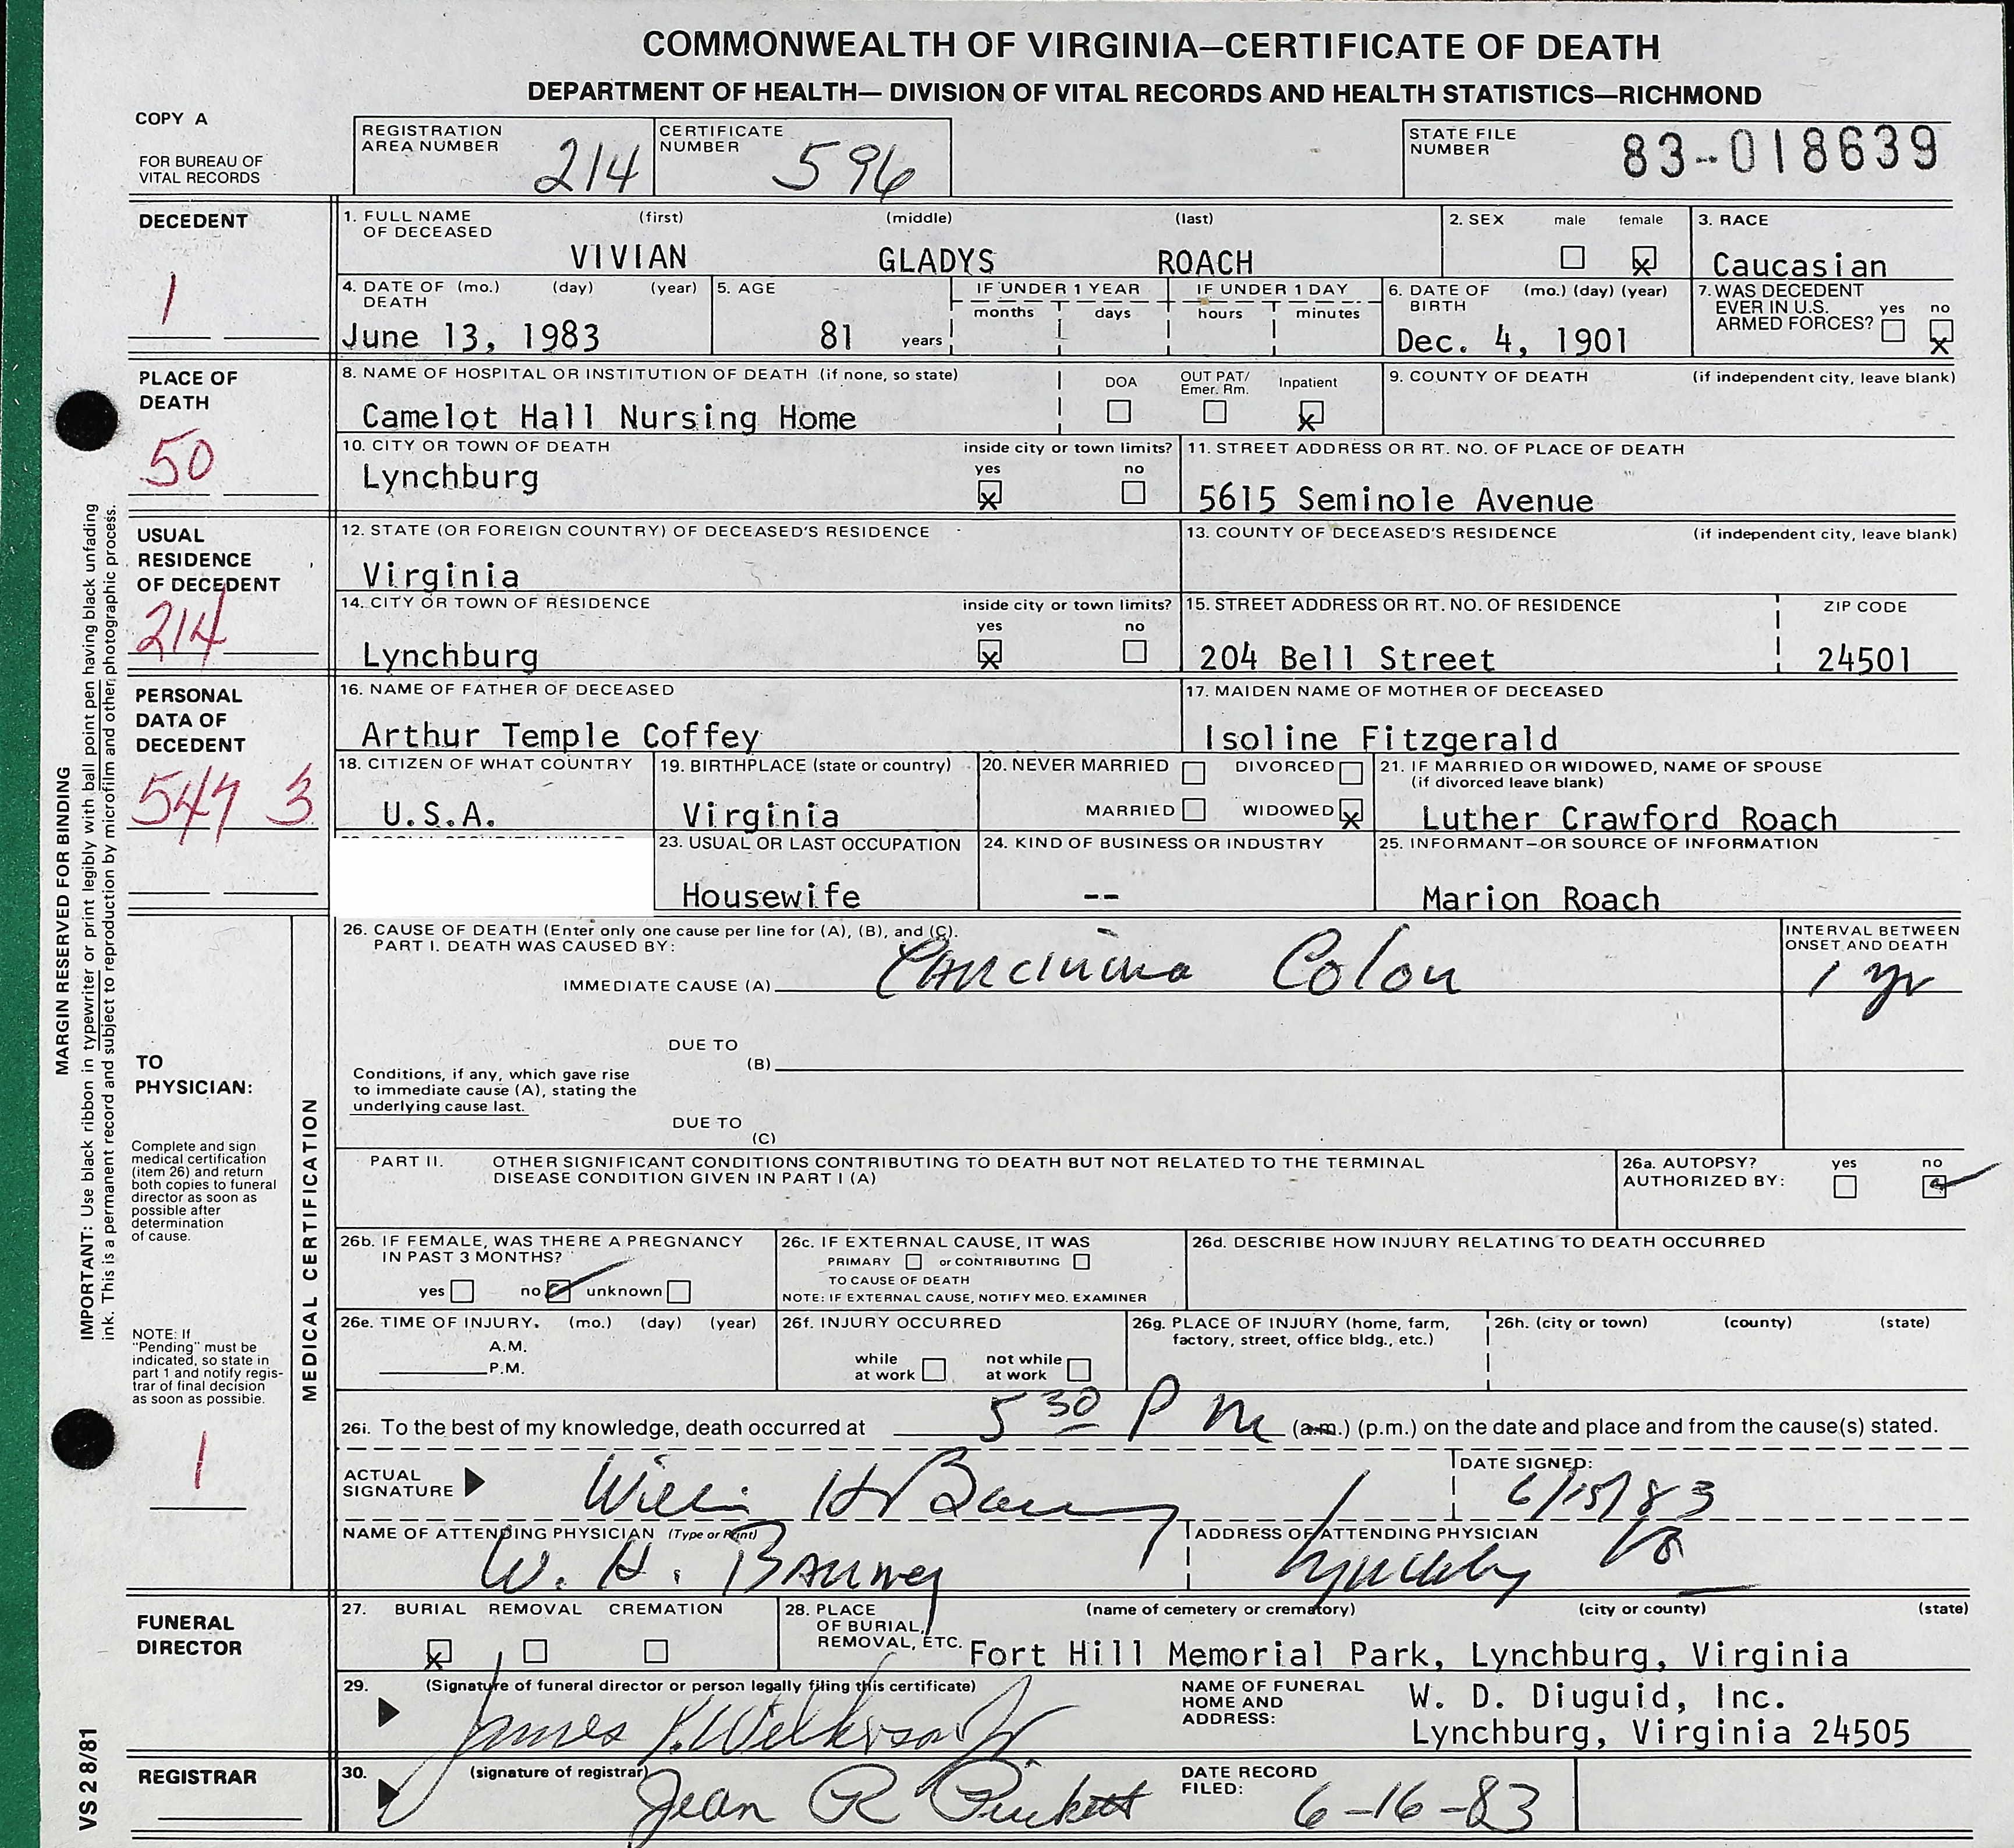 COMMONWEALTH OF VIRGINIA—CERTIFICATE OF DEATH
DEPARTMENT OF HEALTH— DIVISION OF VITAL RECORDS AND HEALTH STATISTICS—RICHMOND
COPY A
FOR BUREAU OF
VITAL RECORDS
REGISTRATION
AREA NUMBER 214
CERTIFICATE
NUMBER 596
STATE FILE
NUMBER 83-018639
DECEDENT
1
1. FULL NAME (first) (middle) (last)
OF DECEASED
VIVIAN GLADYS ROACH
2. SEX male female
3. RACE
Caucasian
4. DATE OF (mo.) (day) (year)
DEATH
June 13, 1983
5. AGE
81 years
IF UNDER 1 YEAR
months days
IF UNDER 1 DAY
hours minutes
6. DATE OF (mo.) (day) (year)
BIRTH
Dec. 4, 1901
7. WAS DECEDENT
EVER IN U.S. yes no
ARMED FORCES?
PLACE OF
DEATH
50
8. NAME OF HOSPITAL OR INSTITUTION OF DEATH (if none, so state)
Camelot Hall Nursing Home
DOA OUT PAT/ Inpatient
Emer. Rm.
9. COUNTY OF DEATH (if independent city, leave blank)
10. CITY OR TOWN OF DEATH inside city or town limits?
yes no
Lynchburg
11. STREET ADDRESS OR RT. NO. OF PLACE OF DEATH
5615 Seminole Avenue
USUAL
RESIDENCE
OF DECEDENT
214
12. STATE (OR FOREIGN COUNTRY) OF DECEASED'S RESIDENCE
Virginia
13. COUNTY OF DECEASED'S RESIDENCE (if independent city, leave blank)
14. CITY OR TOWN OF RESIDENCE inside city or town limits?
yes no
Lynchburg
15. STREET ADDRESS OR RT. NO. OF RESIDENCE ZIP CODE
204 Bell Street 24501
PERSONAL
DATA OF
DECEDENT
547 3
16. NAME OF FATHER OF DECEASED
Arthur Temple Coffey
17. MAIDEN NAME OF MOTHER OF DECEASED
Isoline Fitzgerald
18. CITIZEN OF WHAT COUNTRY
U.S.A.
19. BIRTHPLACE (state or country)
Virginia
20. NEVER MARRIED DIVORCED
MARRIED WIDOWED
21. IF MARRIED OR WIDOWED, NAME OF SPOUSE
(if divorced leave blank)
Luther Crawford Roach
23. USUAL OR LAST OCCUPATION
Housewife
24. KIND OF BUSINESS OR INDUSTRY
--
25. INFORMANT—OR SOURCE OF INFORMATION
Marion Roach
MARGIN RESERVED FOR BINDING
IMPORTANT: Use black ribbon in typewriter or print legibly with ball point pen having black unfading
ink. This is a permanent record and subject to reproduction by microfilm and other photographic process.
TO
PHYSICIAN:
Complete and sign
medical certification
(item 26) and return
both copies to funeral
director as soon as
possible after
determination
of cause.
NOTE: If
"Pending" must be
indicated, so state in
part 1 and notify regis-
trar of final decision
as soon as possible.
1
MEDICAL CERTIFICATION
26. CAUSE OF DEATH (Enter only one cause per line for (A), (B), and (C).
PART I. DEATH WAS CAUSED BY:
IMMEDIATE CAUSE (A) Carcinoma Colon
INTERVAL BETWEEN
ONSET AND DEATH
1 yr
DUE TO
(B)
Conditions, if any, which gave rise
to immediate cause (A), stating the
underlying cause last.
DUE TO
(C)
PART II. OTHER SIGNIFICANT CONDITIONS CONTRIBUTING TO DEATH BUT NOT RELATED TO THE TERMINAL
DISEASE CONDITION GIVEN IN PART I (A)
26a. AUTOPSY? yes no
AUTHORIZED BY:
26b. IF FEMALE, WAS THERE A PREGNANCY
IN PAST 3 MONTHS?
yes no unknown
26c. IF EXTERNAL CAUSE, IT WAS
PRIMARY or CONTRIBUTING
TO CAUSE OF DEATH
NOTE: IF EXTERNAL CAUSE, NOTIFY MED. EXAMINER
26d. DESCRIBE HOW INJURY RELATING TO DEATH OCCURRED
26e. TIME OF INJURY. (mo.) (day) (year)
A.M.
P.M.
26f. INJURY OCCURRED
while not while
at work at work
26g. PLACE OF INJURY (home, farm,
factory, street, office bldg., etc.)
26h. (city or town) (county) (state)
26i. To the best of my knowledge, death occurred at 5 30 P M (a.m.) (p.m.) on the date and place and from the cause(s) stated.
ACTUAL
SIGNATURE
DATE SIGNED:
6/15/83
NAME OF ATTENDING PHYSICIAN (Type or Print)
W. H. Barney
ADDRESS OF ATTENDING PHYSICIAN
Va
FUNERAL
DIRECTOR
27. BURIAL REMOVAL CREMATION
28. PLACE (name of cemetery or crematory) (city or county) (state)
OF BURIAL,
REMOVAL, ETC. Fort Hill Memorial Park, Lynchburg, Virginia
29. (Signature of funeral director or person legally filing this certificate)
James Wilkerson Jr
NAME OF FUNERAL
HOME AND
ADDRESS:
W. D. Diuguid, Inc.
Lynchburg, Virginia 24505
REGISTRAR
30. (signature of registrar)
Jean R Puckett
DATE RECORD
FILED: 6-16-83
VS 2 8/81